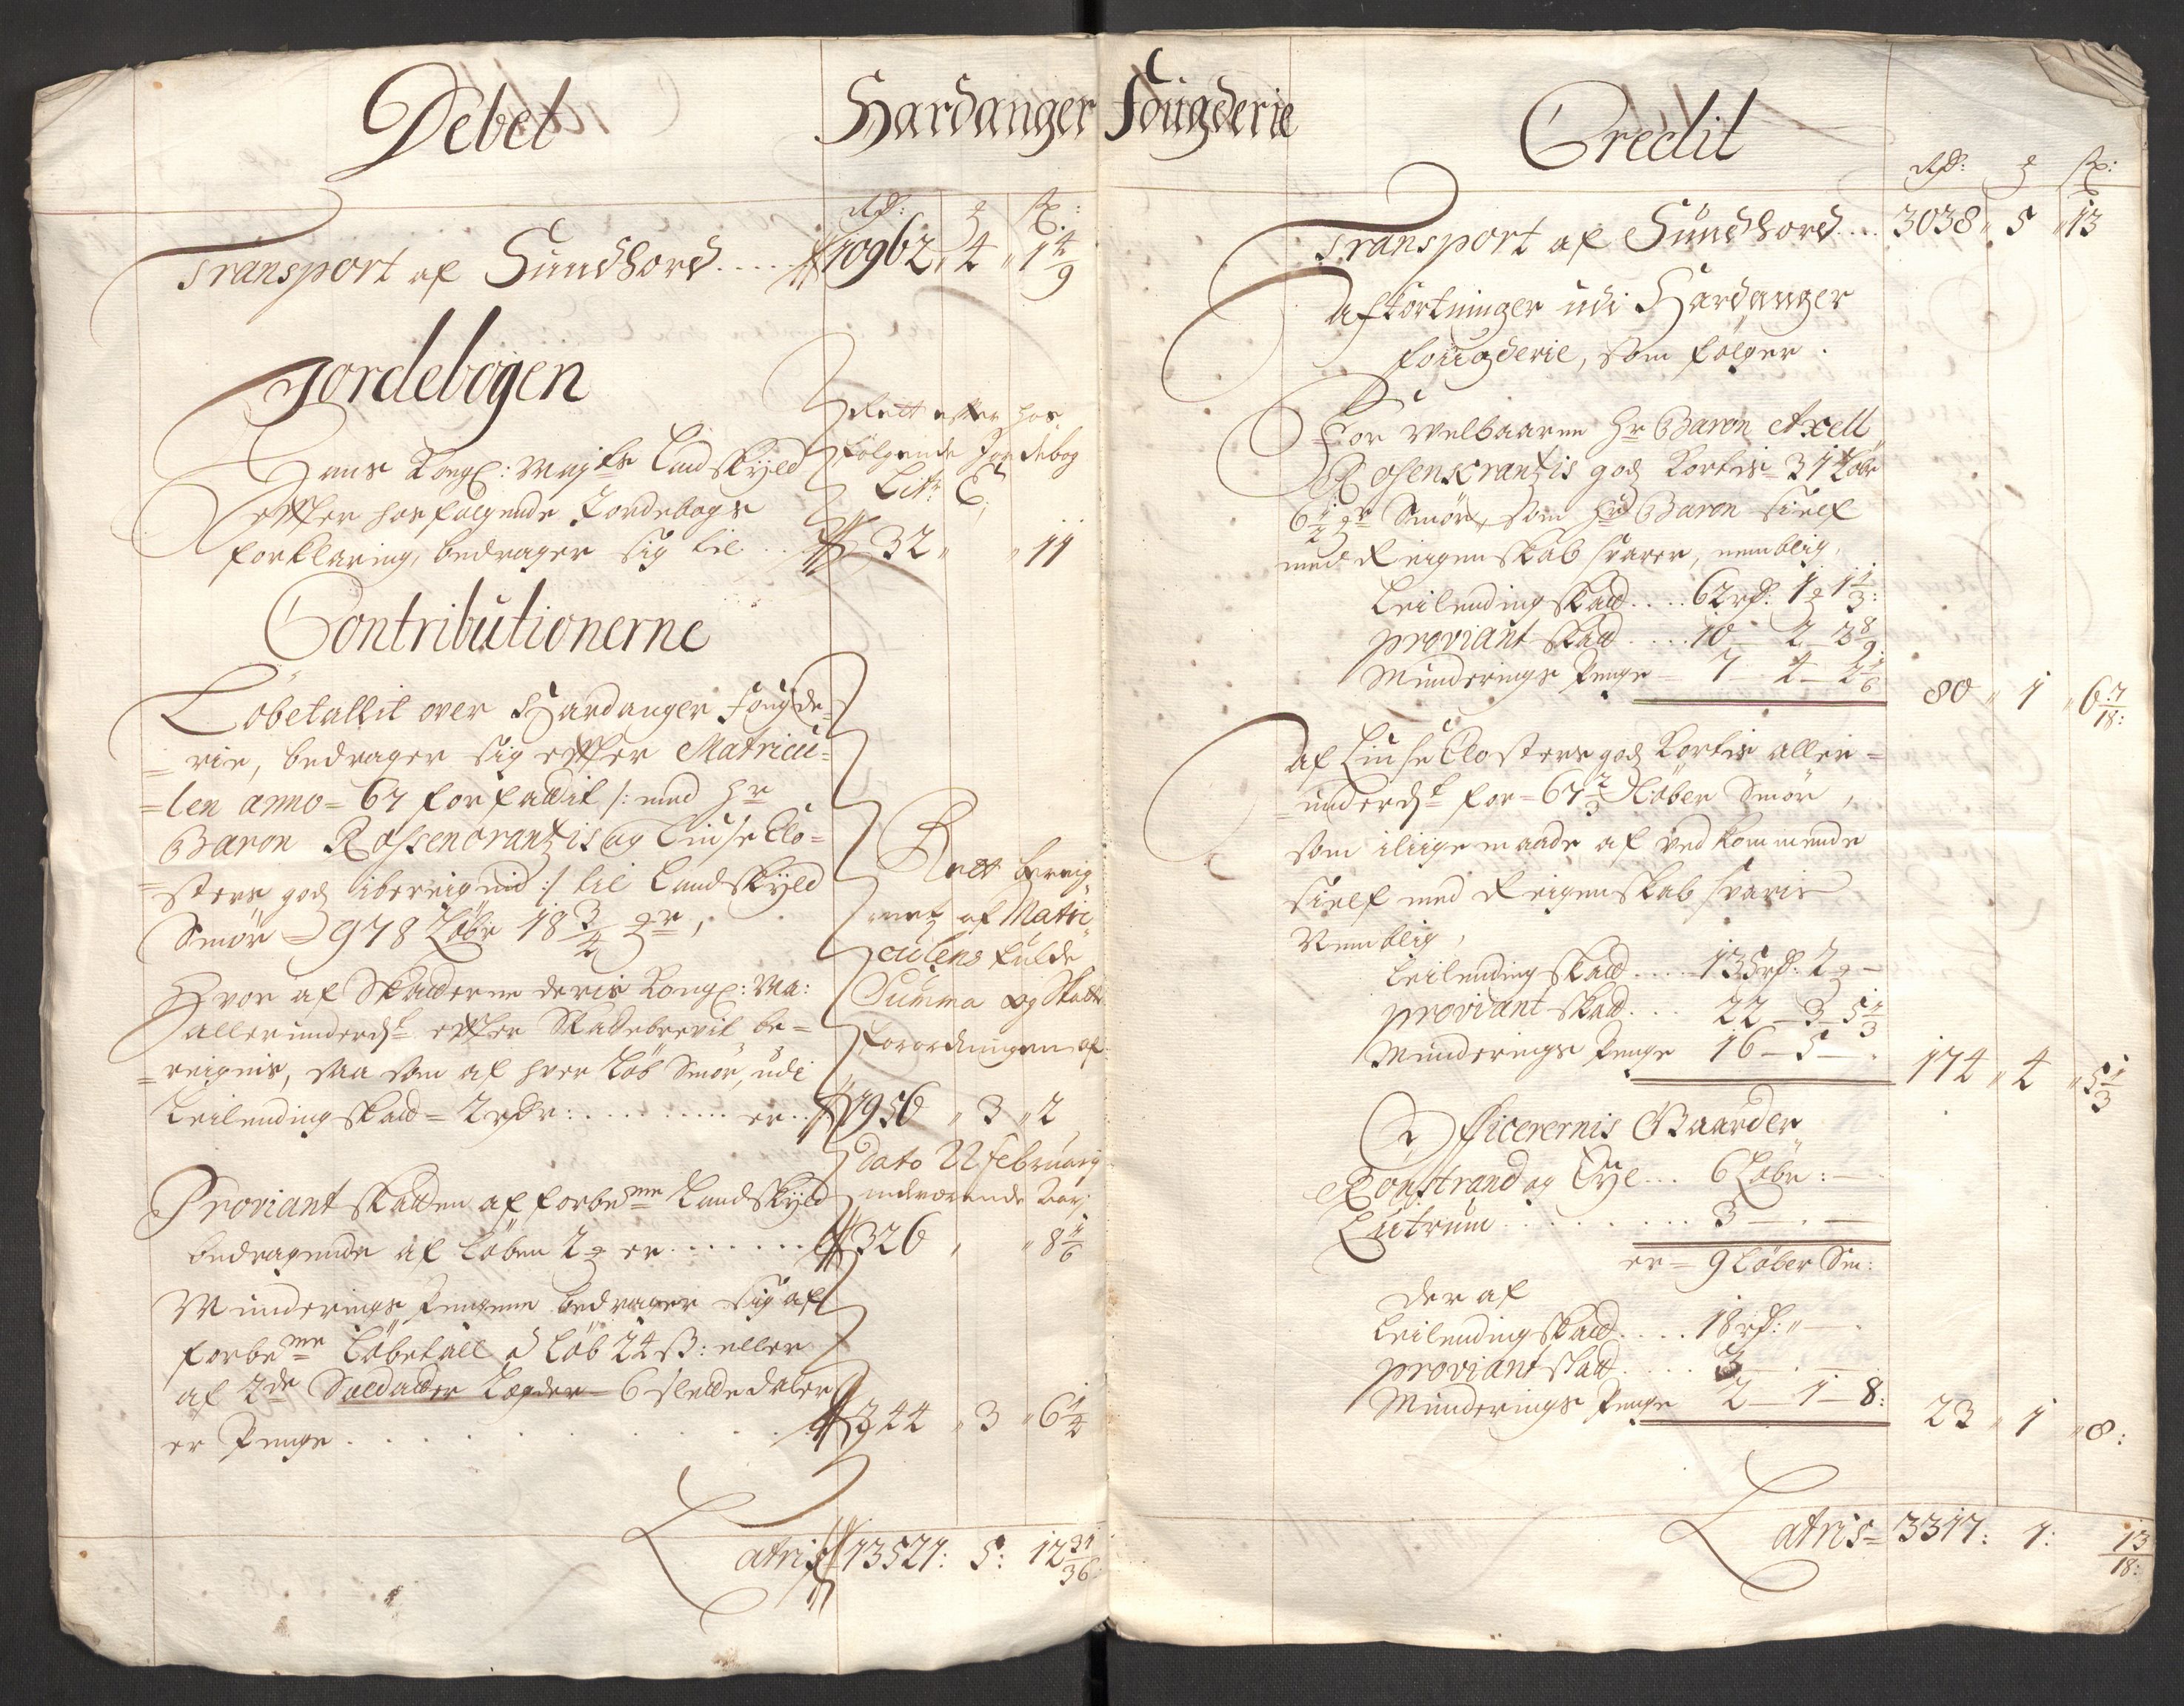 Debet
Hardanger Fougderie
Credit
Rdr: ʒ ß:
Transport af Sundhord..... 10962 " 4 " 1 4/9
Jordebogen
Hans Kongl: Mayts Landskyld
effter hosfølgende Jordebogs
forklaring, bedrager sig til .. 32 " " 11
Rett effter hos
følgende Jordebog
Litr: C:
Contributionerne
Löbetallit over Hardanger Fougde=
=rie, bedrager sig effter Matricu=
=len anno= 67 forfattit /: med Hr
Baron Rossencrantzis og Liuse Clo=
=sters godz ibereignid :/ til Landskyld
Smör = 978 Löbe 18 3/4 
Hvor af Skatterne deris Kongl: Ma:
allerunderdt effter Skattebrevit be=
=reignis, saa som af hver Löb Smör, udi
Leilending skatt = 2 rdr: .......... er.. 1956 " 3 " 2
Rett bereig
net af Matri
culens fulde
Summa og Skatte
forordningen af
Dato 22 February
indværende Aar:
Proviant skatten af forbemte Landskyld
bedragende af Löben 2 ʒ er....... 326 " " 8 1/6
Munderings Pengene bedrager sig af
forbemte Löbetall à Löb 24 ß: eller
af 2de Soldatter Lægder 6 slettedaler
er Penge . . . . . . . . . 244 " 3 " 6 1/4
Latris 13521: 5: 12 31/36:
Rdr: ʒ ß:
Transport af Sundhord... 3038 " 5 " 13
Afkortninger udi Hardanger
Fougderie, som følger.
For Welbaarne Hr Baron Axell
Rosenkrantzis godz Kortis 31 Löbe
6 1/2 Smör, som Hr Baron sielf
med Reigenskab svarer, nemblig,
Leilending skatt.... 62 rdr: 1 ʒ 1 1/3:
Proviant skatt..... 10 — 2 — 3 8/9
Munderings Penge — 7 — 4 — 2 1/6
80 " 1 " 6 7/18:
Af Liuse Closters godz Kortis aller=
=underdt for = 67 2/3 Löber Smör,
som iliige maade af vedkommende
sielf med Reigenskab svaris
Nemblig,
Leilending skatt..... 135 rdr: 2 ʒ —
Proviant skatt.... 22 — 3 — 5 1/3
Munderings Penge 16 — 5 — .
174 " 4 " 5 1/3
Officerernis Gaarder
Ronstrand og Eye... 6 Löbe: —
Lutrum . . . . . . . . . 3 — . —
er = 9 Löber Sm:
Der af
Leilending skatt..... 18 rdr: " — .
Proviant skatt..... 3 — . — .
Munderings Penge 2 — 1 — 8:
23 " 1 " 8:
Latris = 3317: 1: 13/18: